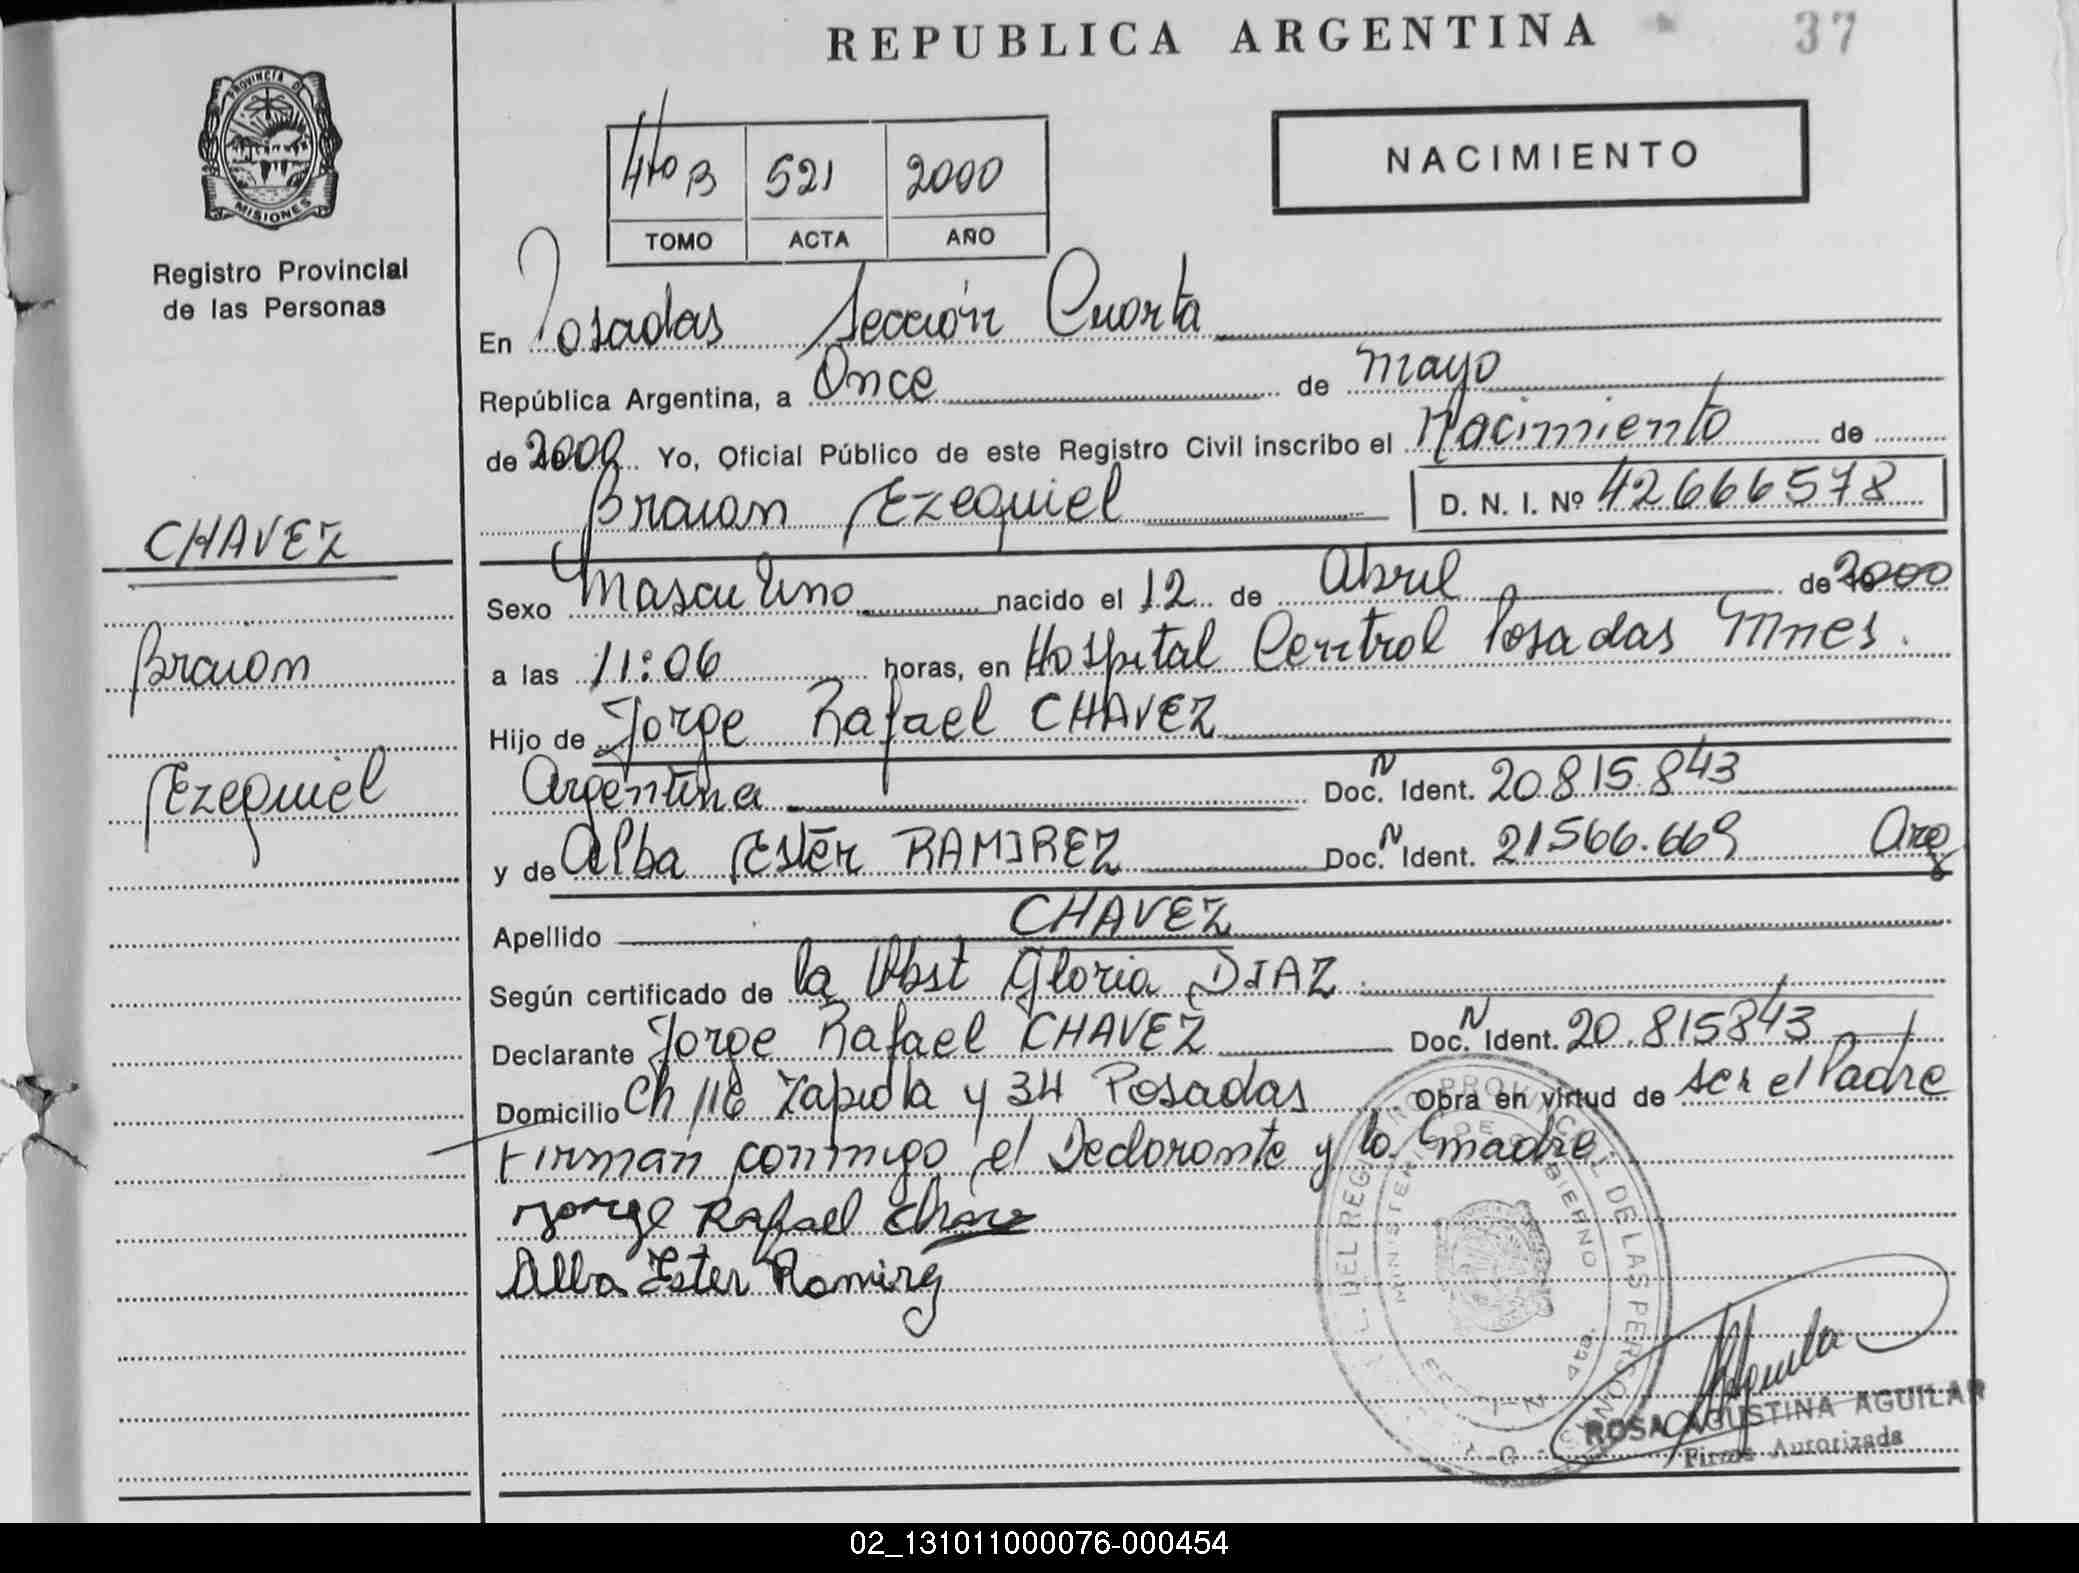 REPUBLICA ARGENTINA
37
PROVINCIA DE
MISIONES
Registro Provincial
de las Personas
4to B 521 2000
TOMO ACTA AÑO
NACIMIENTO
En Posadas Sección Cuarta
República Argentina, a Once de mayo
de 2000 Yo, Oficial Público de este Registro Civil inscribo el Nacimiento de
Braian Ezequiel D. N. I. Nº 42666578
CHAVEZ
Braian
Ezequiel
Sexo Masculino nacido el 12 de Abril de 2000
a las 11:06 horas, en Hospital Central Posadas Mnes.
Hijo de Jorge Rafael CHAVEZ
Argentina Doc. N Ident. 20.815.843
y de Alba Ester RAMIREZ Doc. N Ident. 21566.669 Arg
Apellido CHAVEZ
Según certificado de la Obst Gloria DIAZ
Declarante Jorge Rafael CHAVEZ Doc. N Ident. 20.815843
Domicilio Ch 116 Zapiola y 34 Posadas Obra en virtud de ser el Padre
Firman conmigo el Declarante y la madre
Jorge Rafael Chavez
Alba Ester Ramirez
DEL REGISTRO PROVINCIAL DE LAS PERSONAS
MINISTERIO DE GOBIERNO
4ta.
ROSA AGUSTINA AGUILAR
Firma Autorizada
02_131011000076-000454